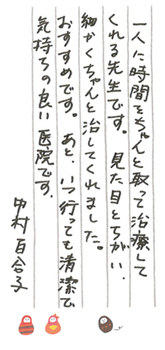 一人に時間をちゃんと取って治療して
くれる先生です。見た目とちがい、
細かくちゃんと治してくれました。
おすすめです。あと、いつ行っても清潔で
気持ちの良い医院です。
中村百合子